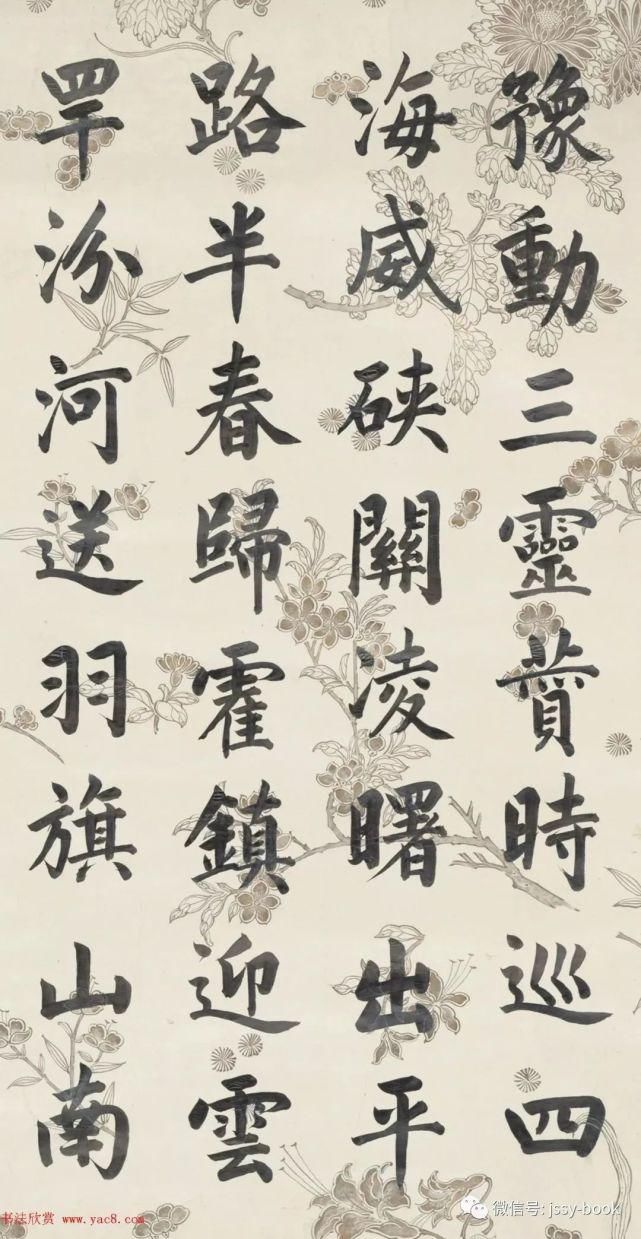 豫動三靈贊時巡四
海威硤關凌曙出平
路半春歸霍鎮迎雲
罕汾河送羽旗山南
书法欣赏 www.yac8.com
微信号: jssy-book